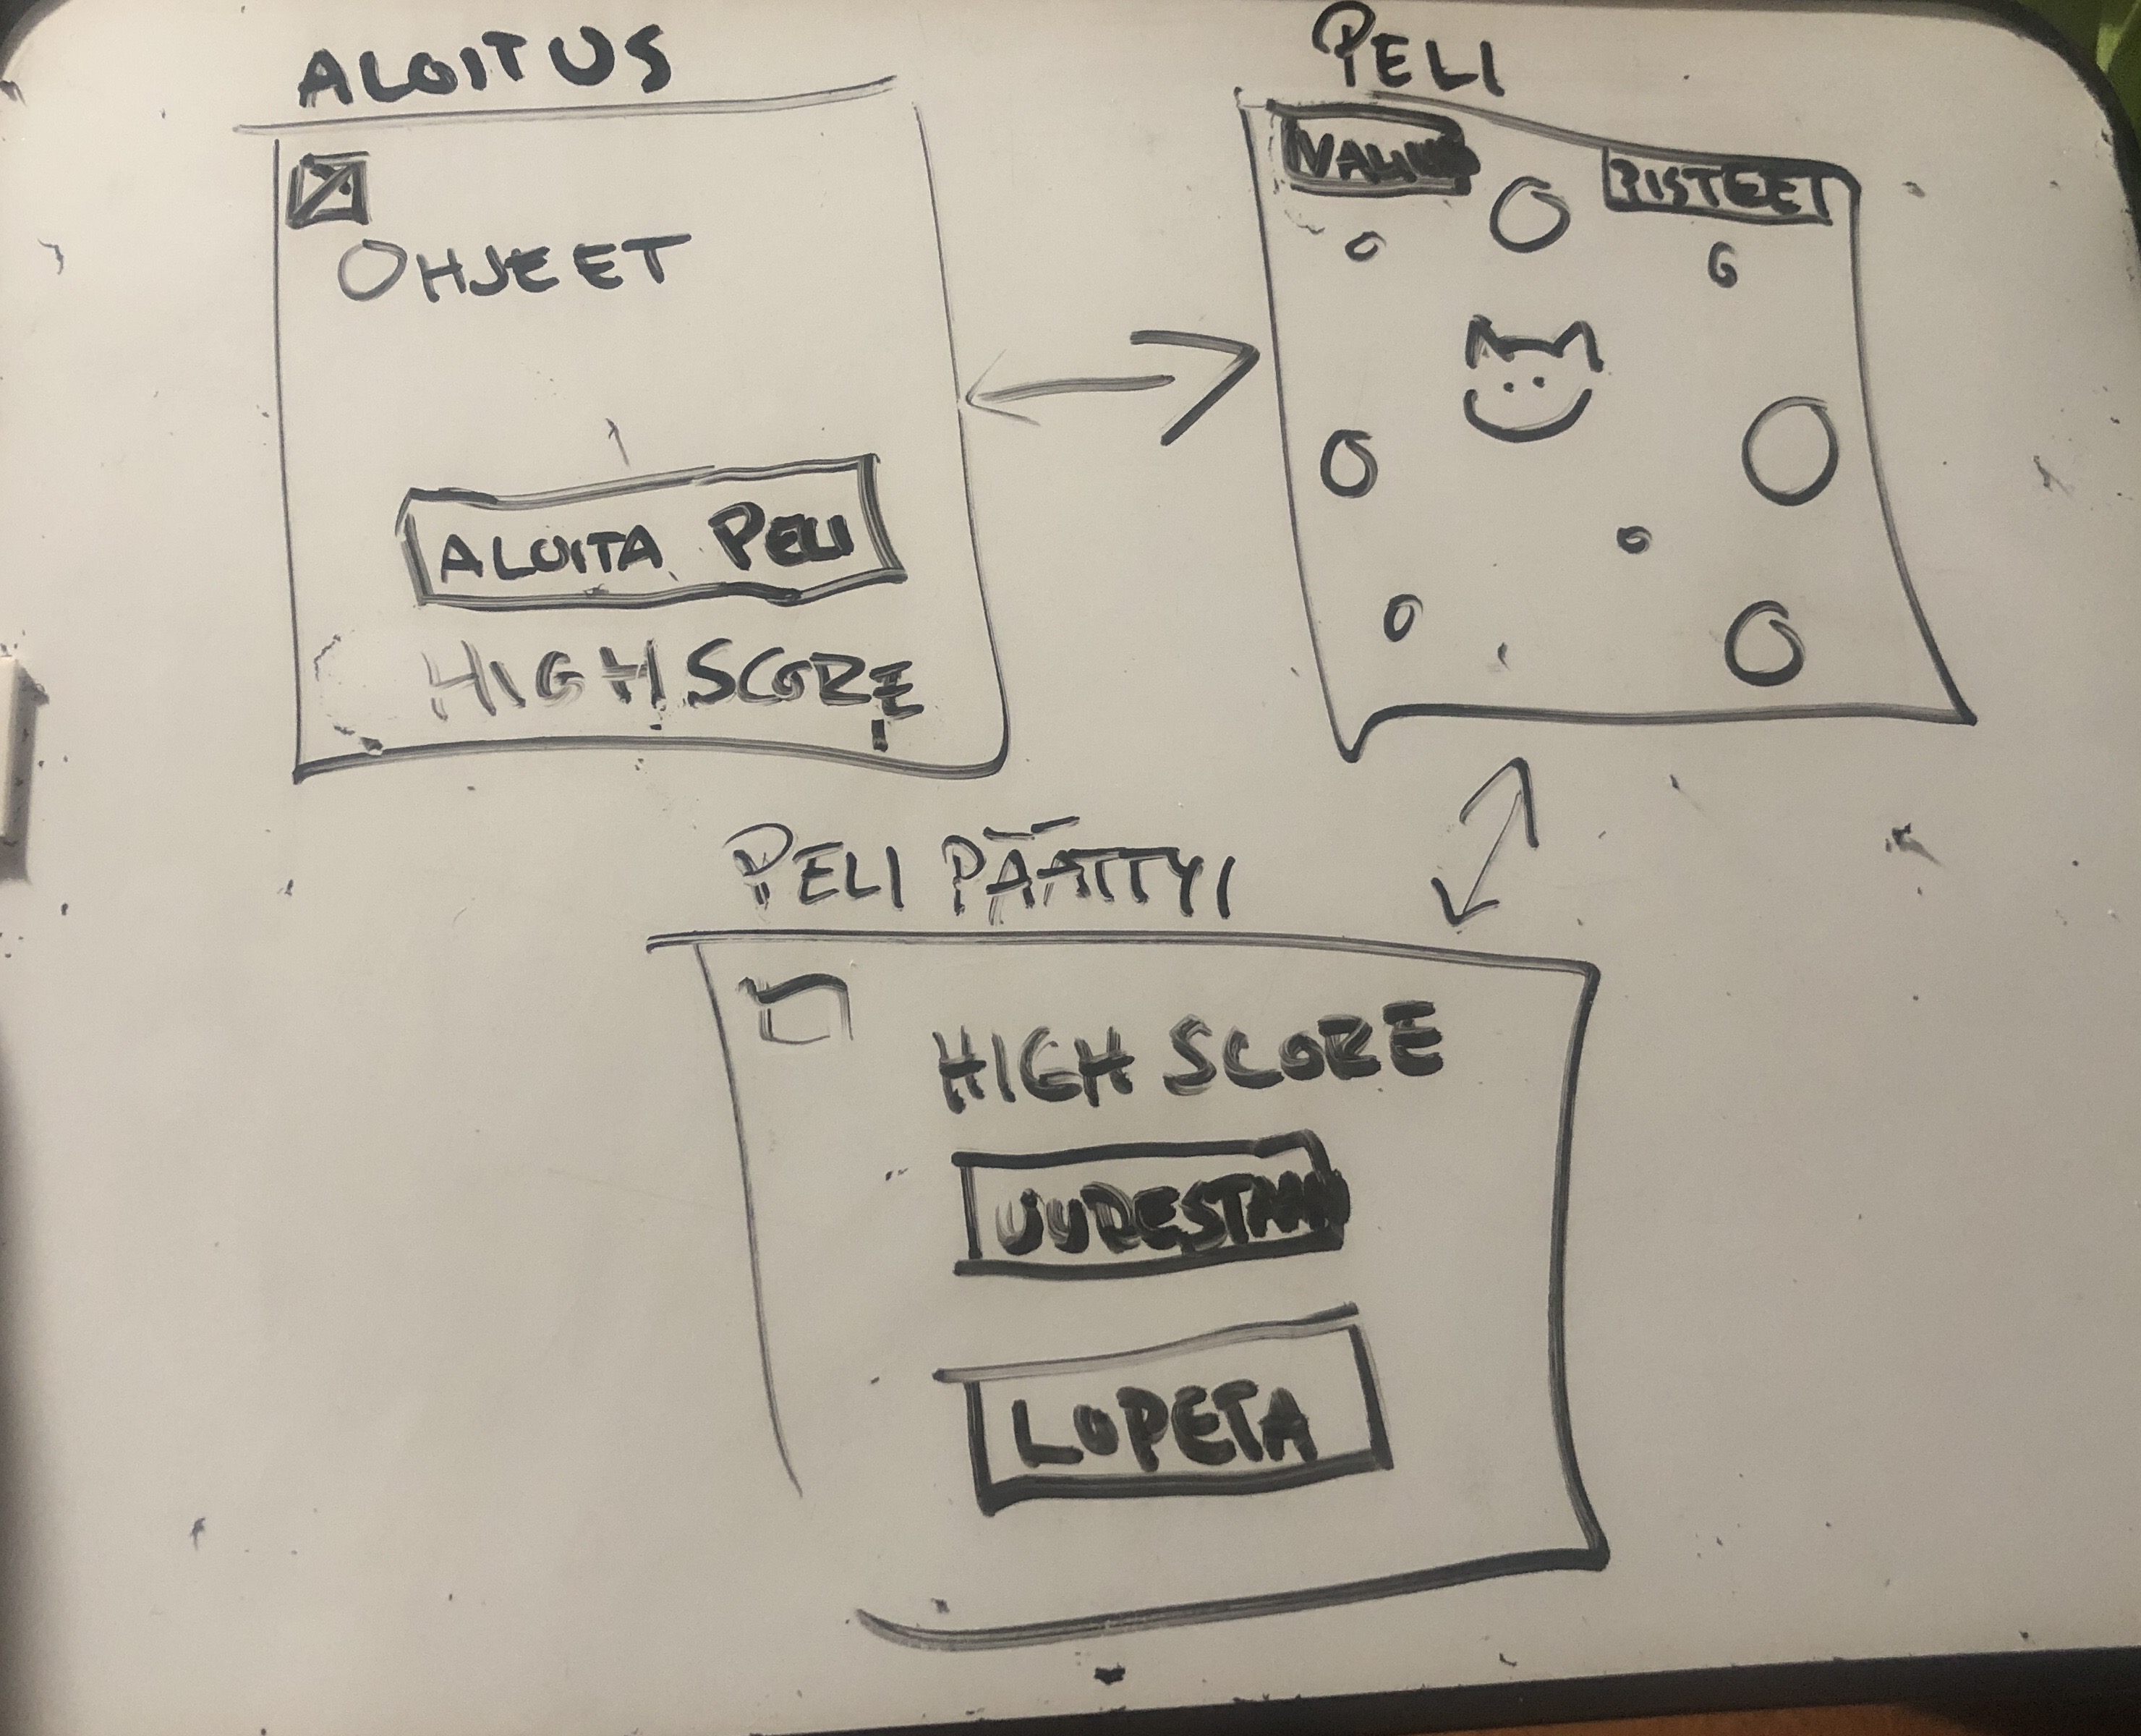 ALOITUS
OHJEET
ALOITA PELI
HIGH SCORE
PELI
PISTEET
PELI PÄÄTTYI
HIGH SCORE
UUDESTAAN
LOPETA